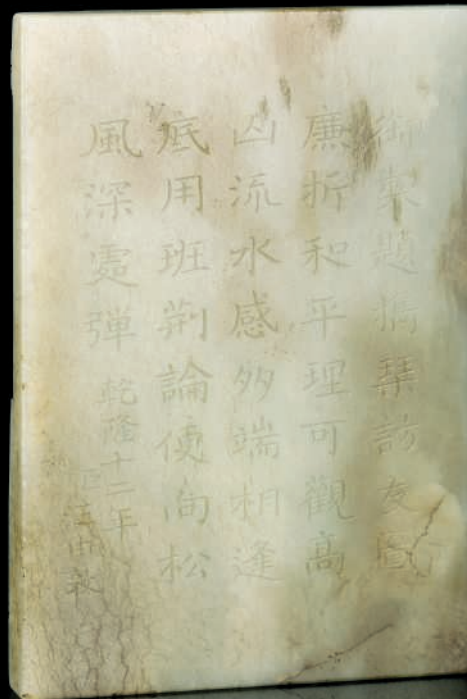 御製題攜琴訪友圖
廉折和平理可觀高
山流水感多端相逢
底用班荊論便向松
風深處彈
乾隆十二年
臣汪由敦